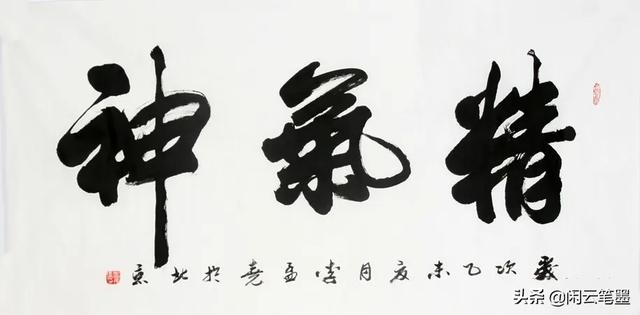 精氣神
歲次乙未夏月李孟堯於北京
头条 @闲云笔墨